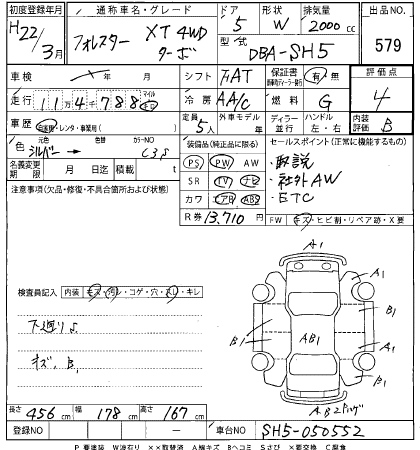 初度登録年月 通称車名・グレード ドア 形状 排気量 出品NO.
H22/3月 フォレスター XT 4WD ターボ 5 W 2000cc 579
型式 DBA-SH5
車検 年 月 シフト FAT 保証書 有・無 評価点
走行 11万4千788 マイル Km 冷房 AA/C 燃料 G 4
車歴 自家用・レンタ・事業用( ) 定員 5人 外車モデル 年 ディーラー 並行 ハンドル 左・右 内装評価 B
色 シルバー → 色替 カラーNO C3S 装備品(純正品に限る) セールスポイント(正常に機能するもの)
名義変更期限 月 日 積載 t PS PW AW ・取説
注意事項(欠品・修復・不具合箇所および状態) SR TV ナビ ・社外AW
カワ エアB ABS ・ETC
R券 13,710円 FW キズ・ヒビ割・リペア跡・X要
A1
検査員記入 内装 キズ・汚レ・コゲ・穴・スレ・キレ
A1
下廻りS
B1 AB1 B1 A1
キズ、B1
B1
A,B2
長さ 456cm 幅 178cm 高さ 167cm
登録NO － 車台NO SH5-050552
P 要塗装 W波有り ××取替済 A線キズ Bヘコミ Sさび ×要交換 C腐食